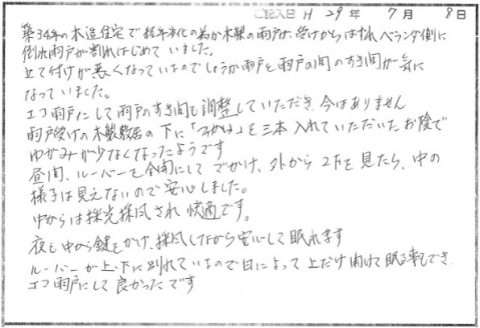 ご記入日 H 29年 7月 8日
築34年の木造住宅で経年劣化の為か木製の雨戸が受けからはずれベランダ側に
倒れ雨戸が割れはじめていました。
立て付けが悪くなっているのでしょうか雨戸と雨戸の間のすき間が気に
なっていました。
エコ雨戸にして雨戸のすき間も調整していただき今はありません
雨戸受けの木製敷居の下に「つかい」を三本入れていただいたお陰で
ゆがみが少なくなったようです
昼間、ルーバーを全開にしてでかけ、外から2Fを見たら、中の
様子は見えないので安心しました。
中からは採光採風され快適です。
夜も中から鍵をかけ、採風しながら安心して眠れます
ルーバーが上、下に別れているので日によって上だけ開けて眠る事もでき、
エコ雨戸にして良かったです